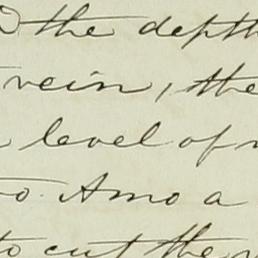 the depth
vein, the
level of
to Amo a
to cut the